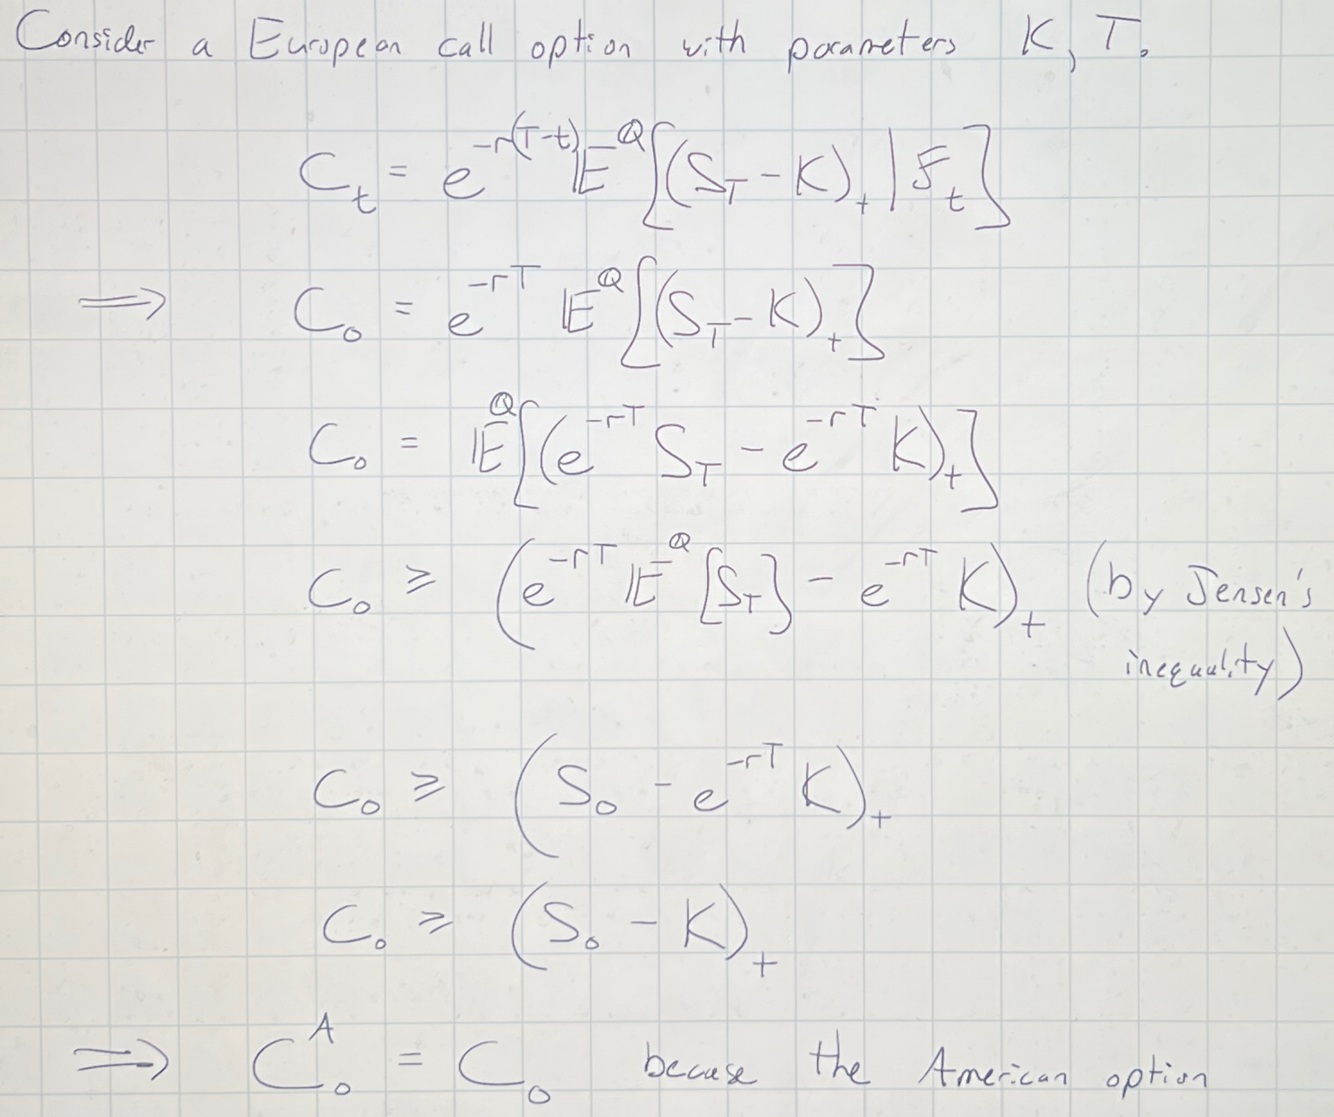 Consider a European call option with parameters K, T.
C_t = e^{-r(T-t)} 𝔼^Q[(S_T - K)_+ | F_t]
⟹ C_0 = e^{-rT} 𝔼^Q[(S_T - K)_+]
C_0 = 𝔼^Q[(e^{-rT} S_T - e^{-rT} K)_+]
C_0 ≥ (e^{-rT} 𝔼^Q[S_T] - e^{-rT} K)_+ (by Jensen's
inequality)
C_0 ≥ (S_0 - e^{-rT} K)_+
C_0 ≥ (S_0 - K)_+
⟹ C_0^A = C_0 because the American option